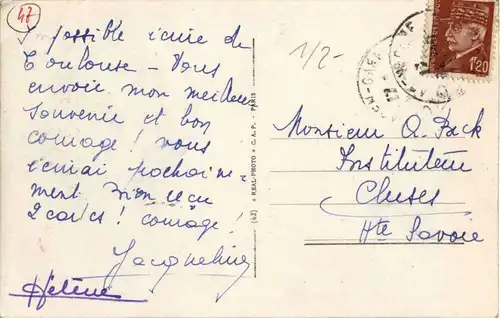 47
Impossible écrire de
Toulouse - Vous
envoie mon meilleur
souvenir et bon
courage! vous
écrirai prochaine-
ment. bien reçu
2 cartes! courage!
Jacqueline
Hélène
(43) • REAL-PHOTO • C.A.P. - PARIS
1/2-
1F20
Monsieur A. Pack
Instituteur
Cluses
Hte Savoie